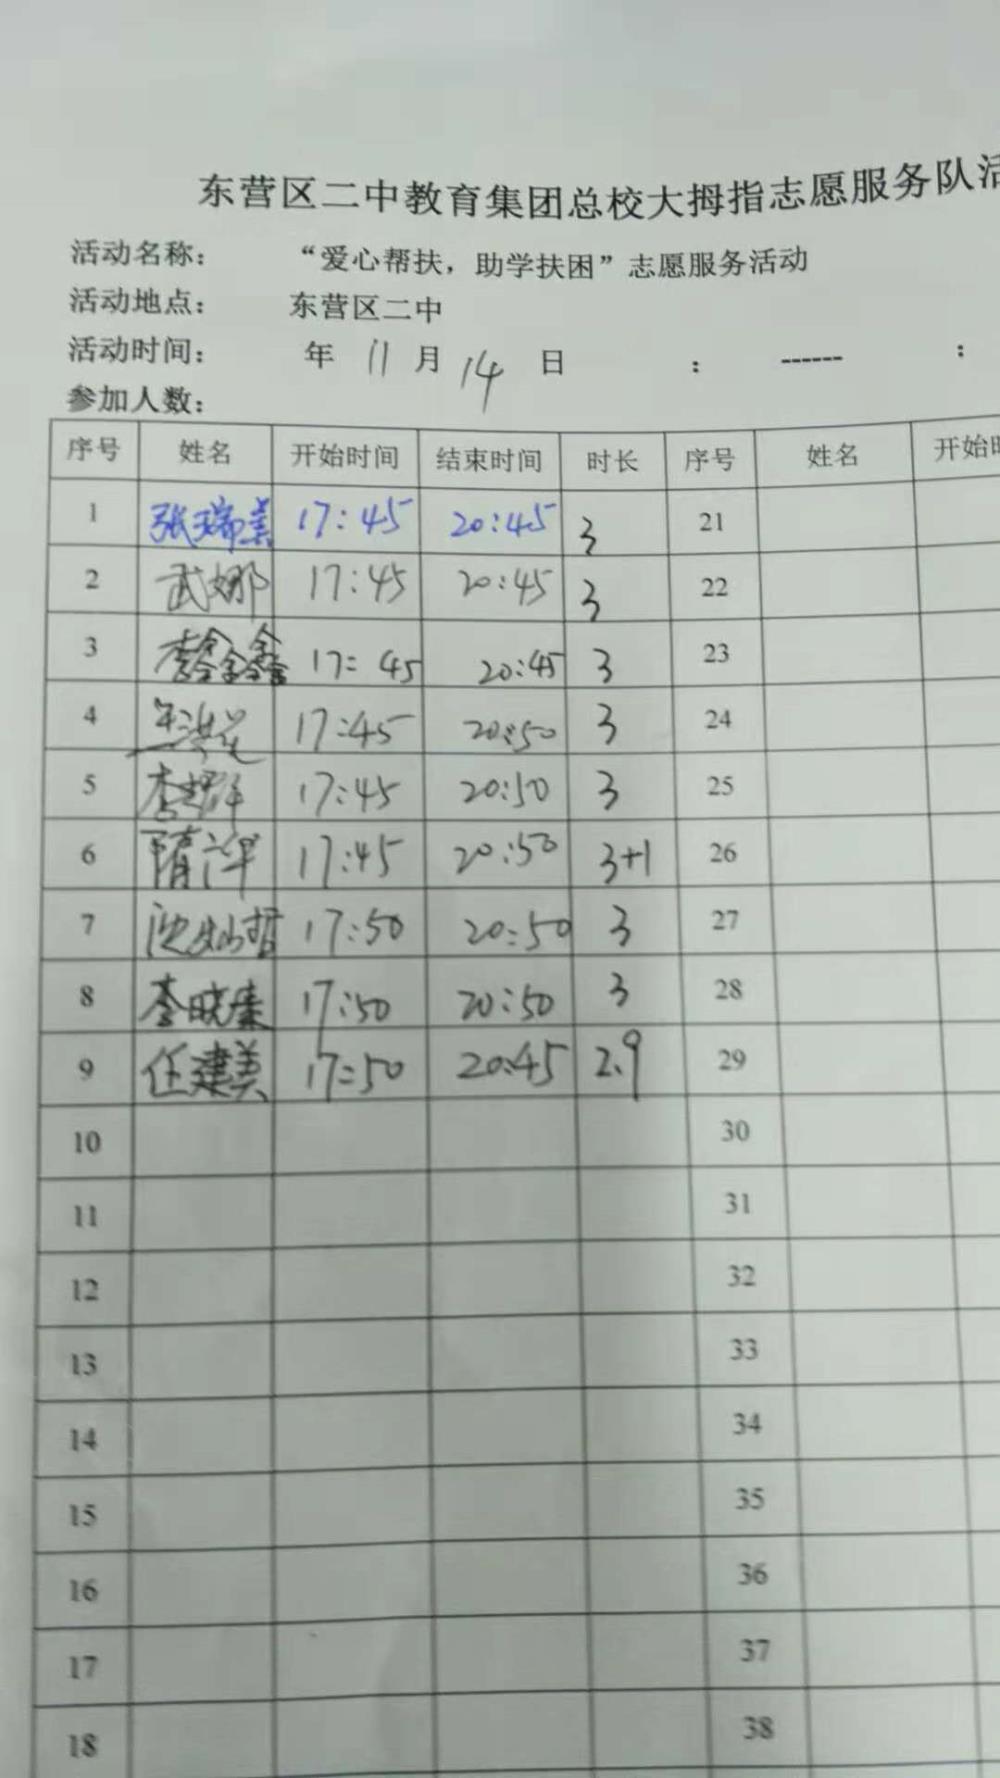 东营区二中教育集团总校大拇指志愿服务队活
活动名称： “爱心帮扶，助学扶困”志愿服务活动
活动地点： 东营区二中
活动时间： 年 11 月 14 日 : ------ :
参加人数：
序号 姓名 开始时间 结束时间 时长 序号 姓名 开始时
1 张瑞美 17:45 20:45 3 21
2 武娜 17:45 20:45 3 22
3 李鑫鑫 17:45 20:45 3 23
4 17:45 20:50 3 24
5 17:45 20:50 3 25
6 隋 17:45 20:50 3+1 26
7 沈灿哲 17:50 20:50 3 27
8 李晓 17:50 20:50 3 28
9 任建美 17:50 20:45 2.9 29
10 30
11 31
12 32
13 33
14 34
15 35
16 36
17 37
18 38